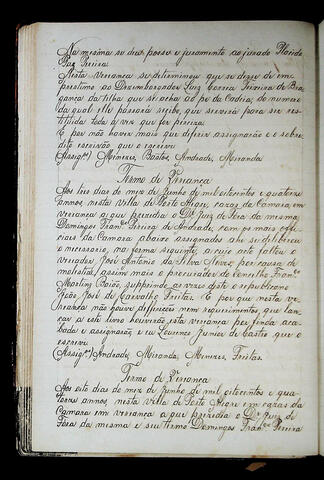 Na mesma se deu posse e juramento ao jurado Placido
Paz Pereira.
Nesta vereança se determinou que se desse de em-
prestimo ao Dezembargador Luiz Correa Teixeira de Bra-
gança da tilha que se acha ao pé da Cadeia, do numero
da qual elle passará recibo, que servirá para ser res-
tituida toda a vez que for preciza.
E por não haver mais que diferir assignarão e o sobre-
dito escrivão que o escrevi
(Assigºs) Menezes, Bastos, Andrade, Miranda
Termo de Vereança
Aos trez dias do mez de Junho de mil oitocentos e quatorze
annos, nesta villa de Porto Alegre, cazas da Camara, em
vereança a que prezidio o Dºr Juiz de Fora da mesma
Domingos Franº Pereira de Andrade, com os mais offi-
ciaes da Camara abaixo assignados ahi se deliberou
o necessario, na forma seguinte, a cujo acto faltou o
vereador José Antonio da Silva Neves, por causa de
molestia, assim mais o procurador do Conselho Franº
Martins Baião, supprindo as vezes deste o republicano
João José de Carvalho Freitas. E por que nesta ve-
reança não houve differiçoes nem requerimentos, que lan-
çar a este livro houverão esta vereança por finda aca-
bada e assignarão, e eu Lourenço Junior de Castro que o
escrevi
(Assigºs) Andrade, Miranda, Menezes, Freitas
Termo de Vereança
Aos oito dias do mez de Junho de mil oitocentos e qua-
torze annos, nesta Villa de Porto Alegre em cazas da
Camara em vereança a que prezidio o Dºr Juiz de
Fora da mesma e seu termo Domingos Franº Pereira